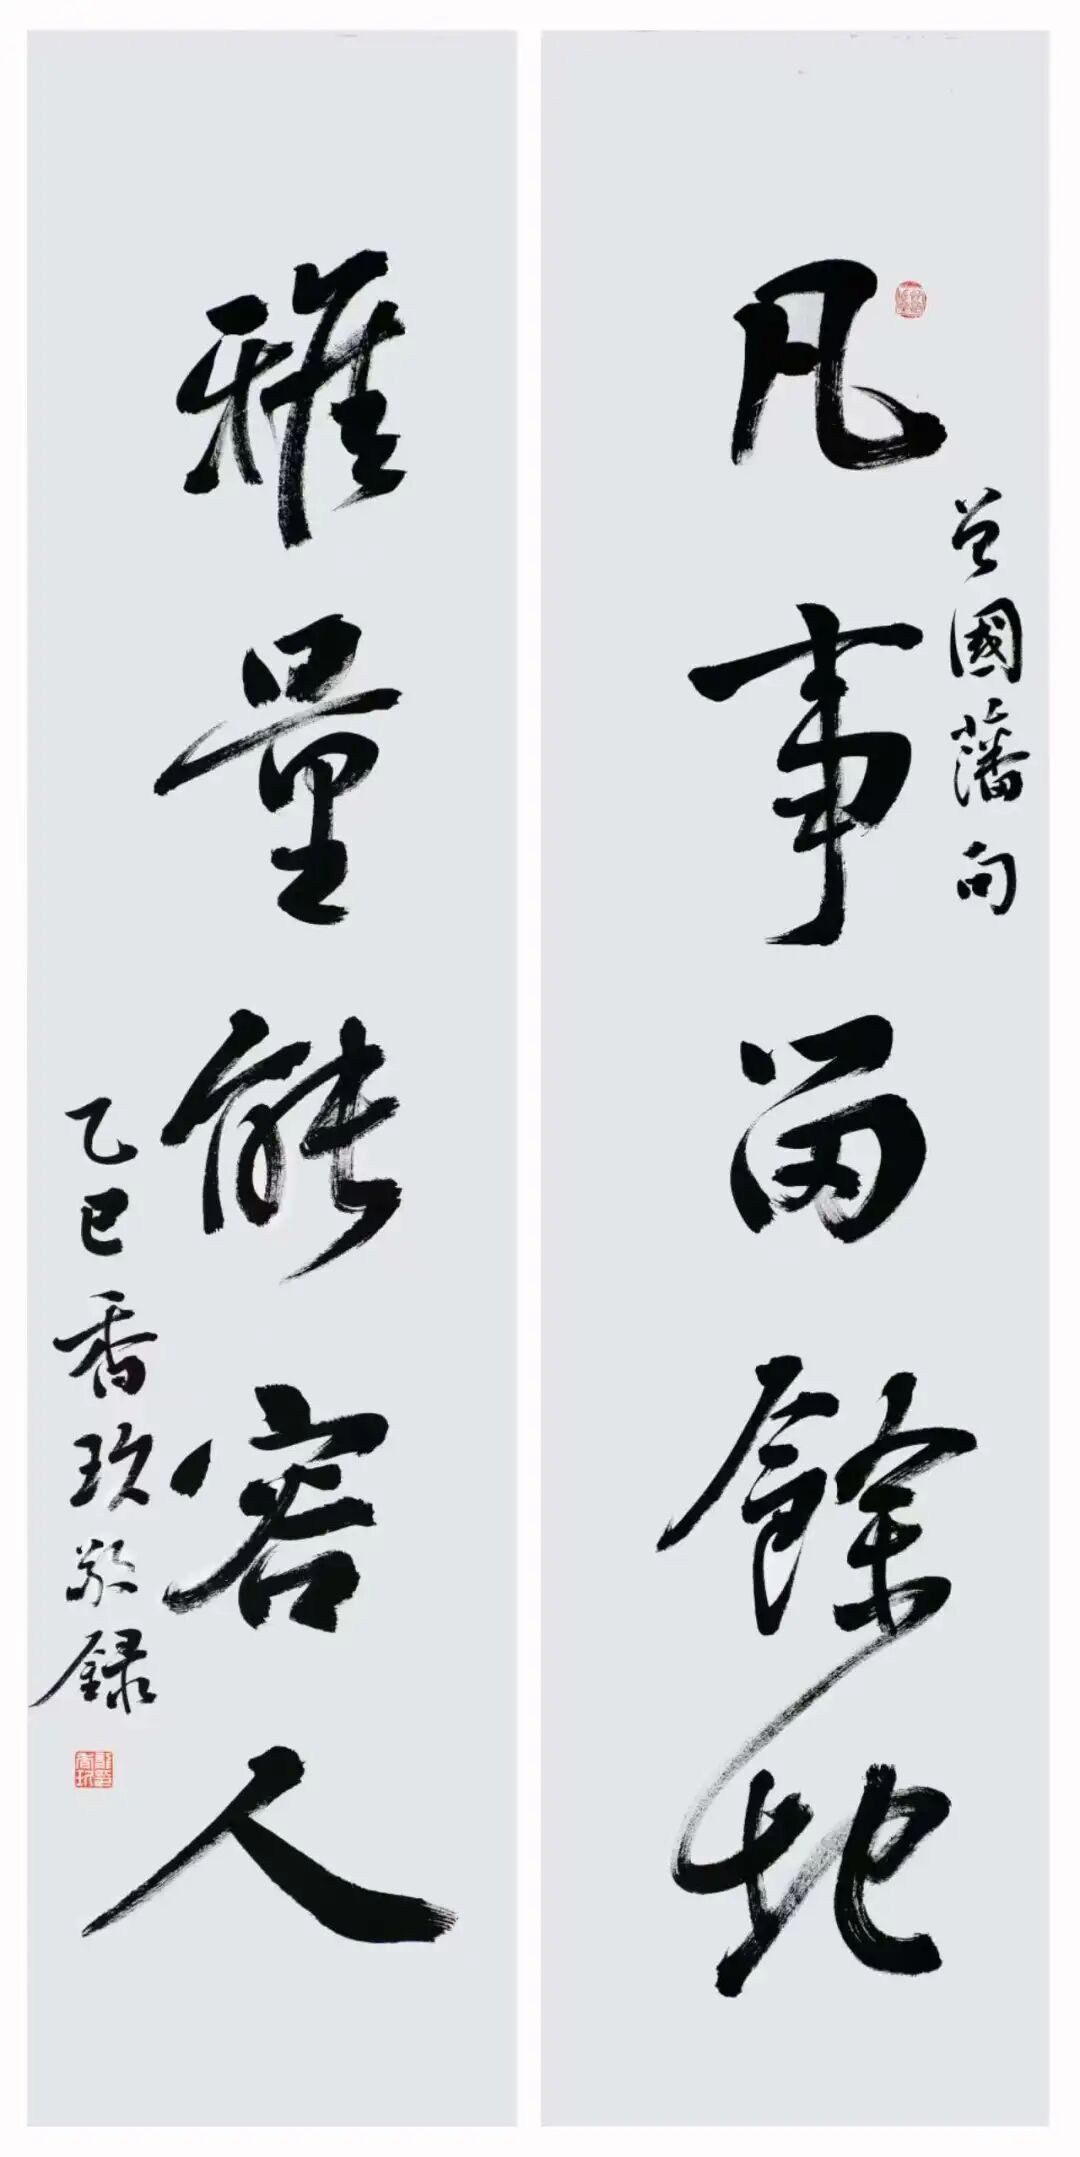 凡事留餘地
曾國藩句
雅量能容人
乙巳香玖敬録